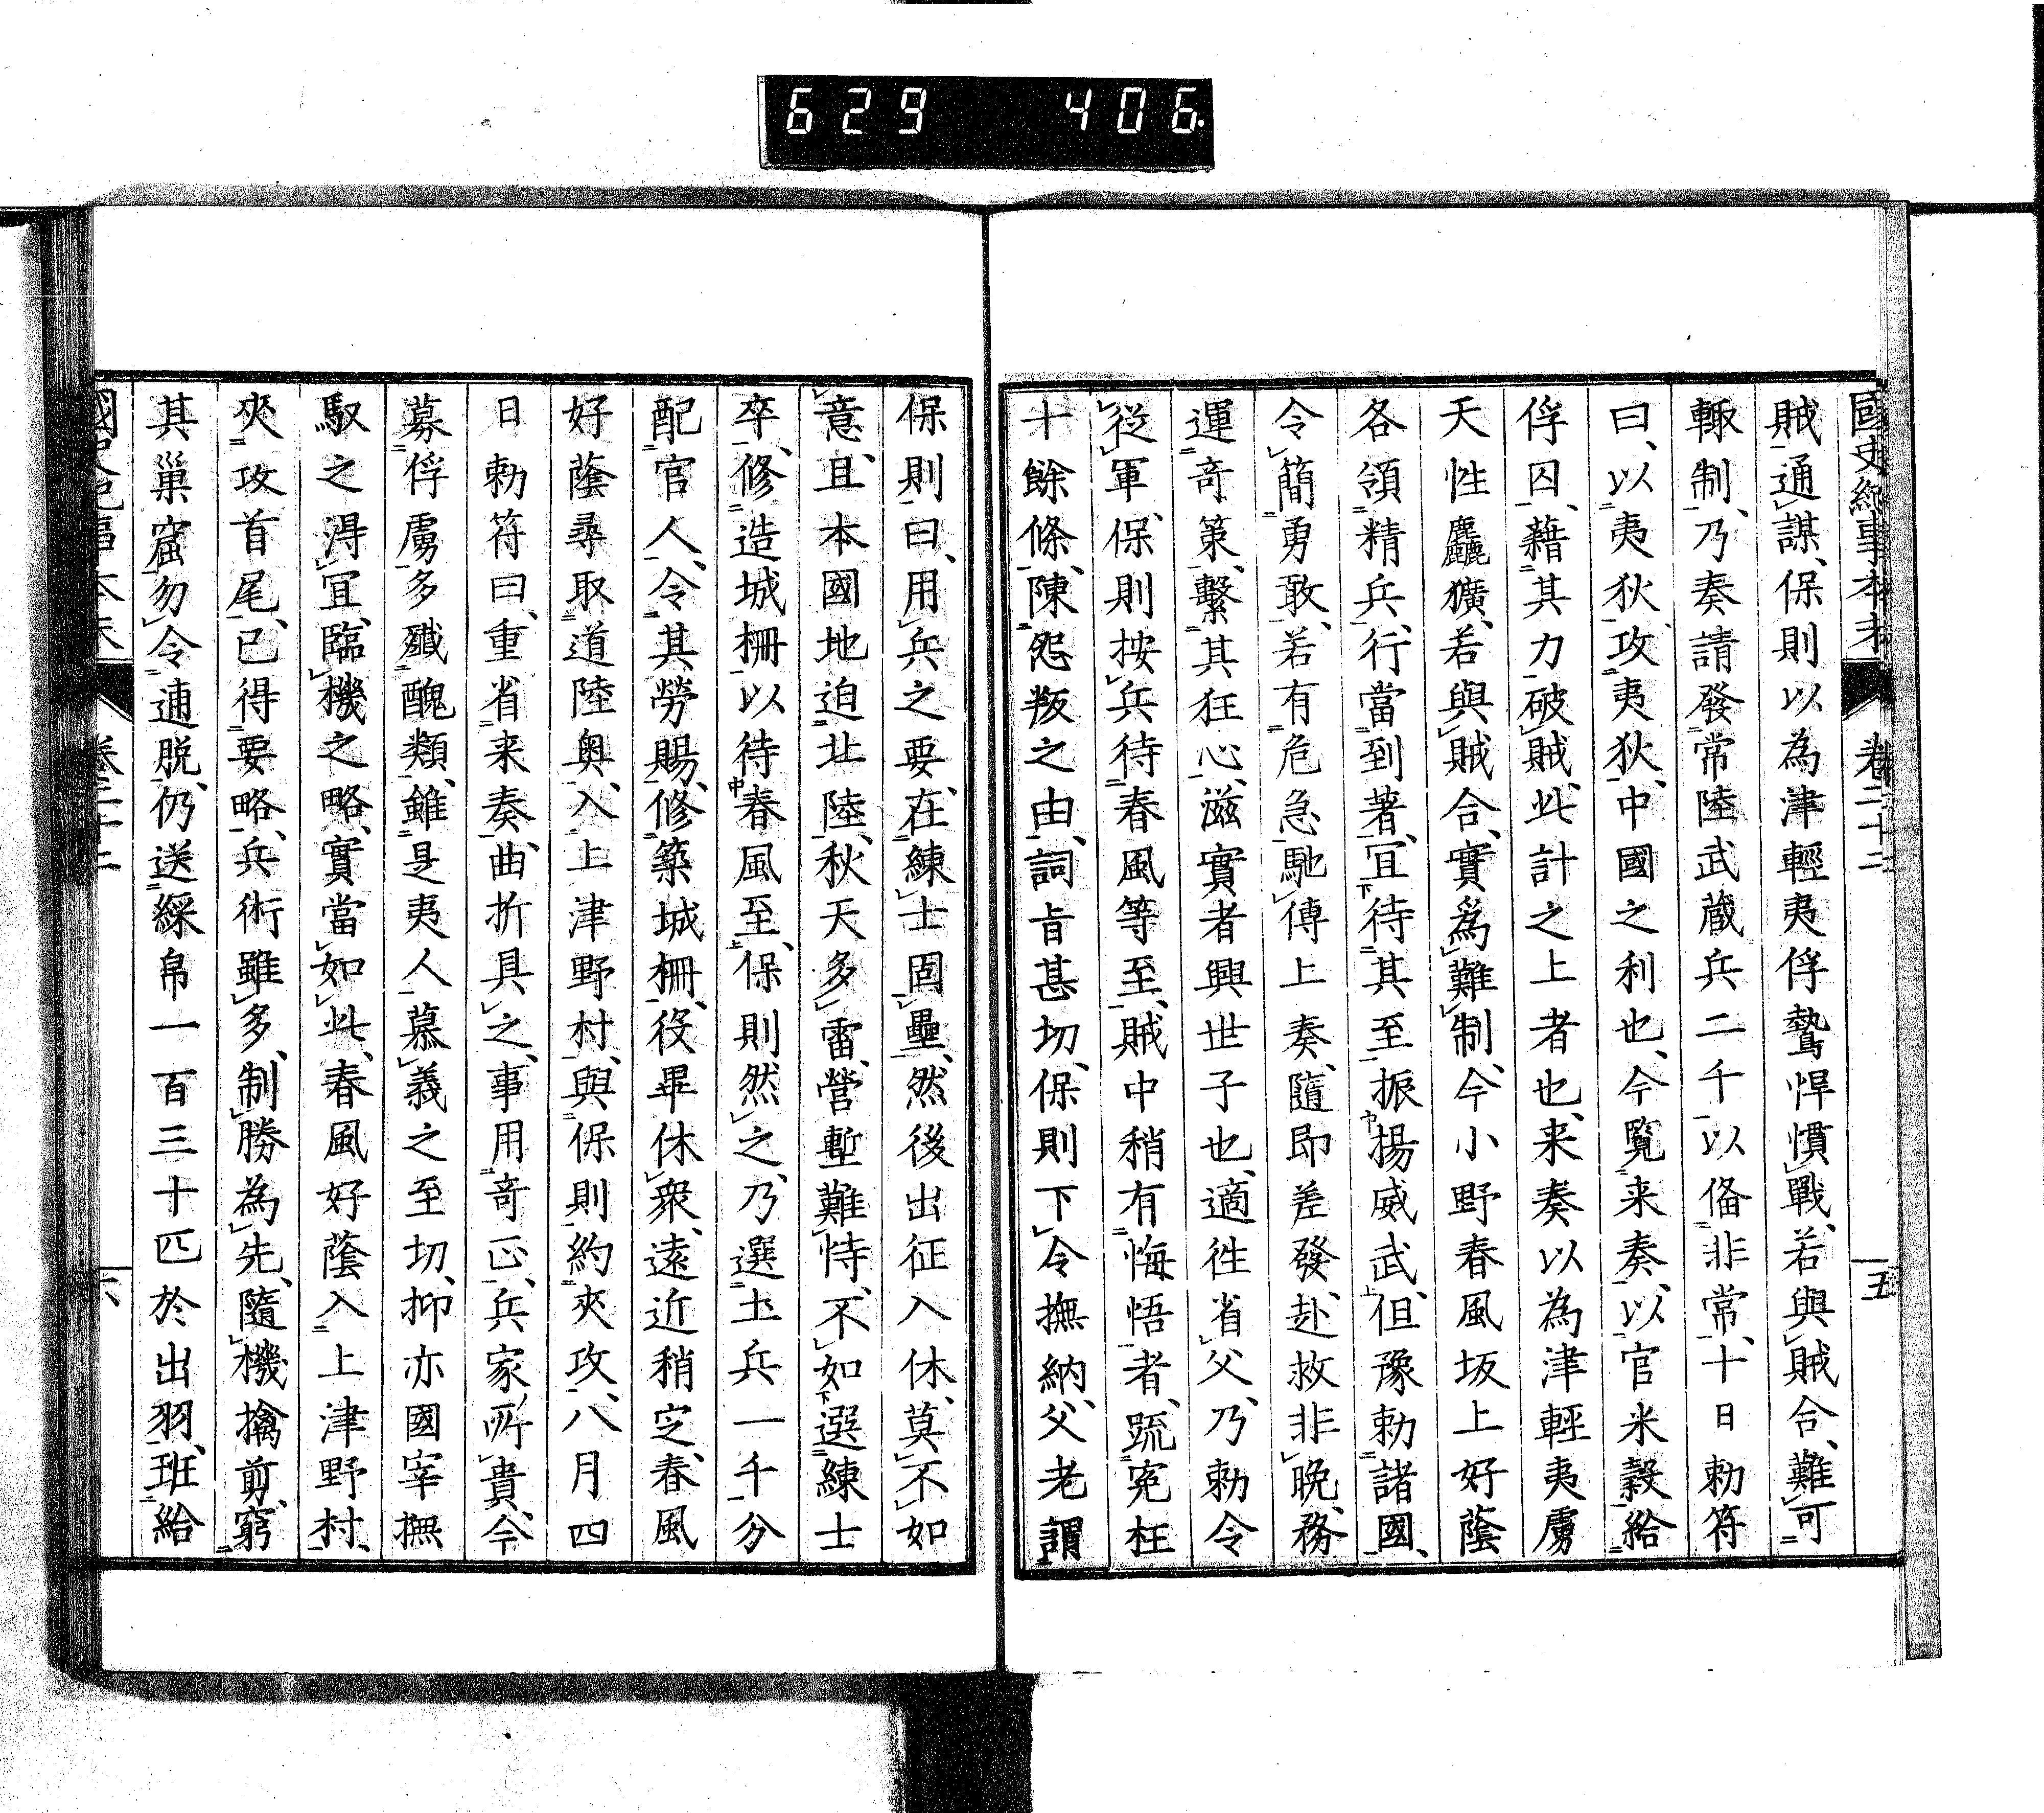 629 406
國史紀事本末 卷二十二 五
賊通謀、保則以為津輕夷俘驁悍慣戰、若與賊合、難可
輙制、乃奏請發常陸武蔵兵二千以俻非常、十日勅符
曰、以夷狄攻夷狄、中國之利也、今覧来奏、以官米穀給
俘囚、藉其力破賊、此計之上者也、来奏以為津輕夷虜
天性麤獷、若與賊合、實為難制、今小野春風坂上好蔭
各領精兵、行當到著、冝待其至振揚威武、但豫勅諸國、
令簡勇敢、若有危急、馳傳上奏、隨即差發、赴救非晩、務
運竒策、繫其狂心、滋實者興世子也、適徃省父、乃勅令
從軍、保則按兵待春風等至、賊中稍有悔悟者、䟽寃枉
十餘條、陳怨叛之由、詞旨甚切、保則下令撫納、父老謂
保則曰、用兵之要、在練士固壘、然後出征入休、莫不如
意、且本國地迫北陸、秋天多雷、營塹難恃、不如選練士
卒、修造城柵以待春風至、保則然之、乃選士兵一千分
配官人、令其勞賜、修築城柵、役畢休衆、遠近稍定、春風
好蔭尋取道陸奥、入上津野村、與保則約夾攻、八月四
日勅符曰、重省来奏、曲折具之、事用竒正、兵家所貴、今
募俘虜多殲醜類、雖是夷人慕義之至切、抑亦國宰撫
馭之得冝、臨機之略、實當如此、春風好蔭入上津野村、
夾攻首尾、已得要略、兵術雖多、制勝為先、隨機擒剪、窮
其巢窟、勿令逋脱、仍送綵帛一百三十匹於出羽、班給
國史紀事本末 卷二十二 六